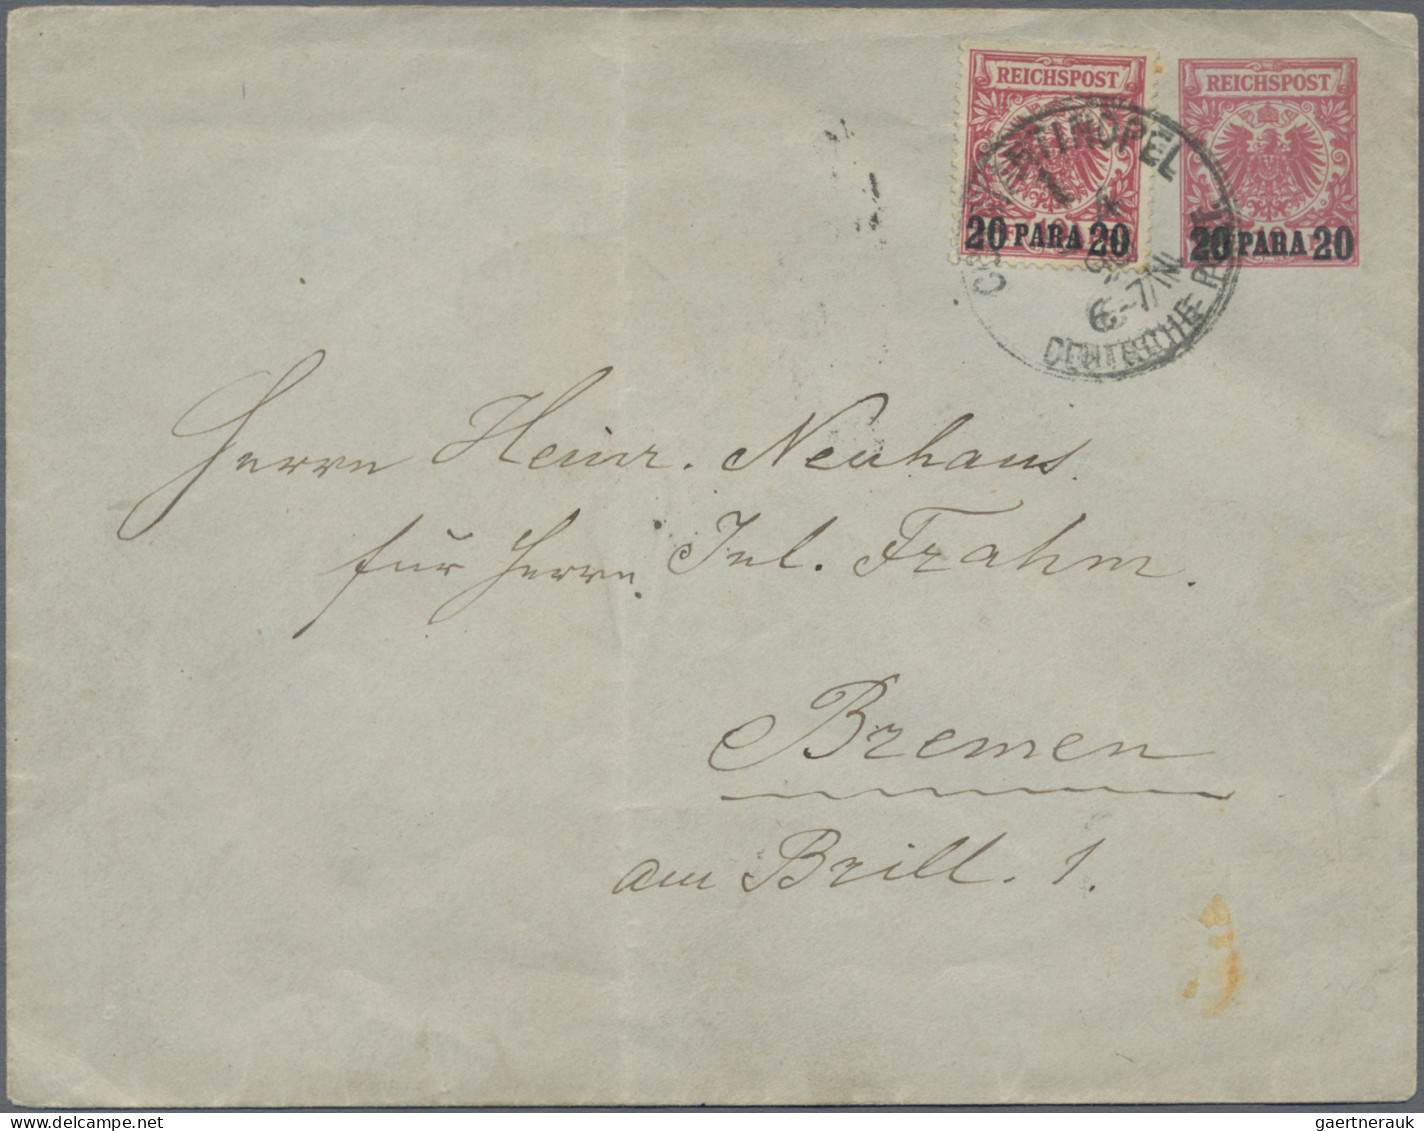 REICHSPOST
20 PARA 20
REICHSPOST
20 PARA 20
CONSTANTINOPEL
1
6-7/N
DEUTSCHE POST
Herrn Heinr. Neuhaus.
für Herrn Jul. Frahm.
Bremen
am Brill. 1.
gaertnerauk